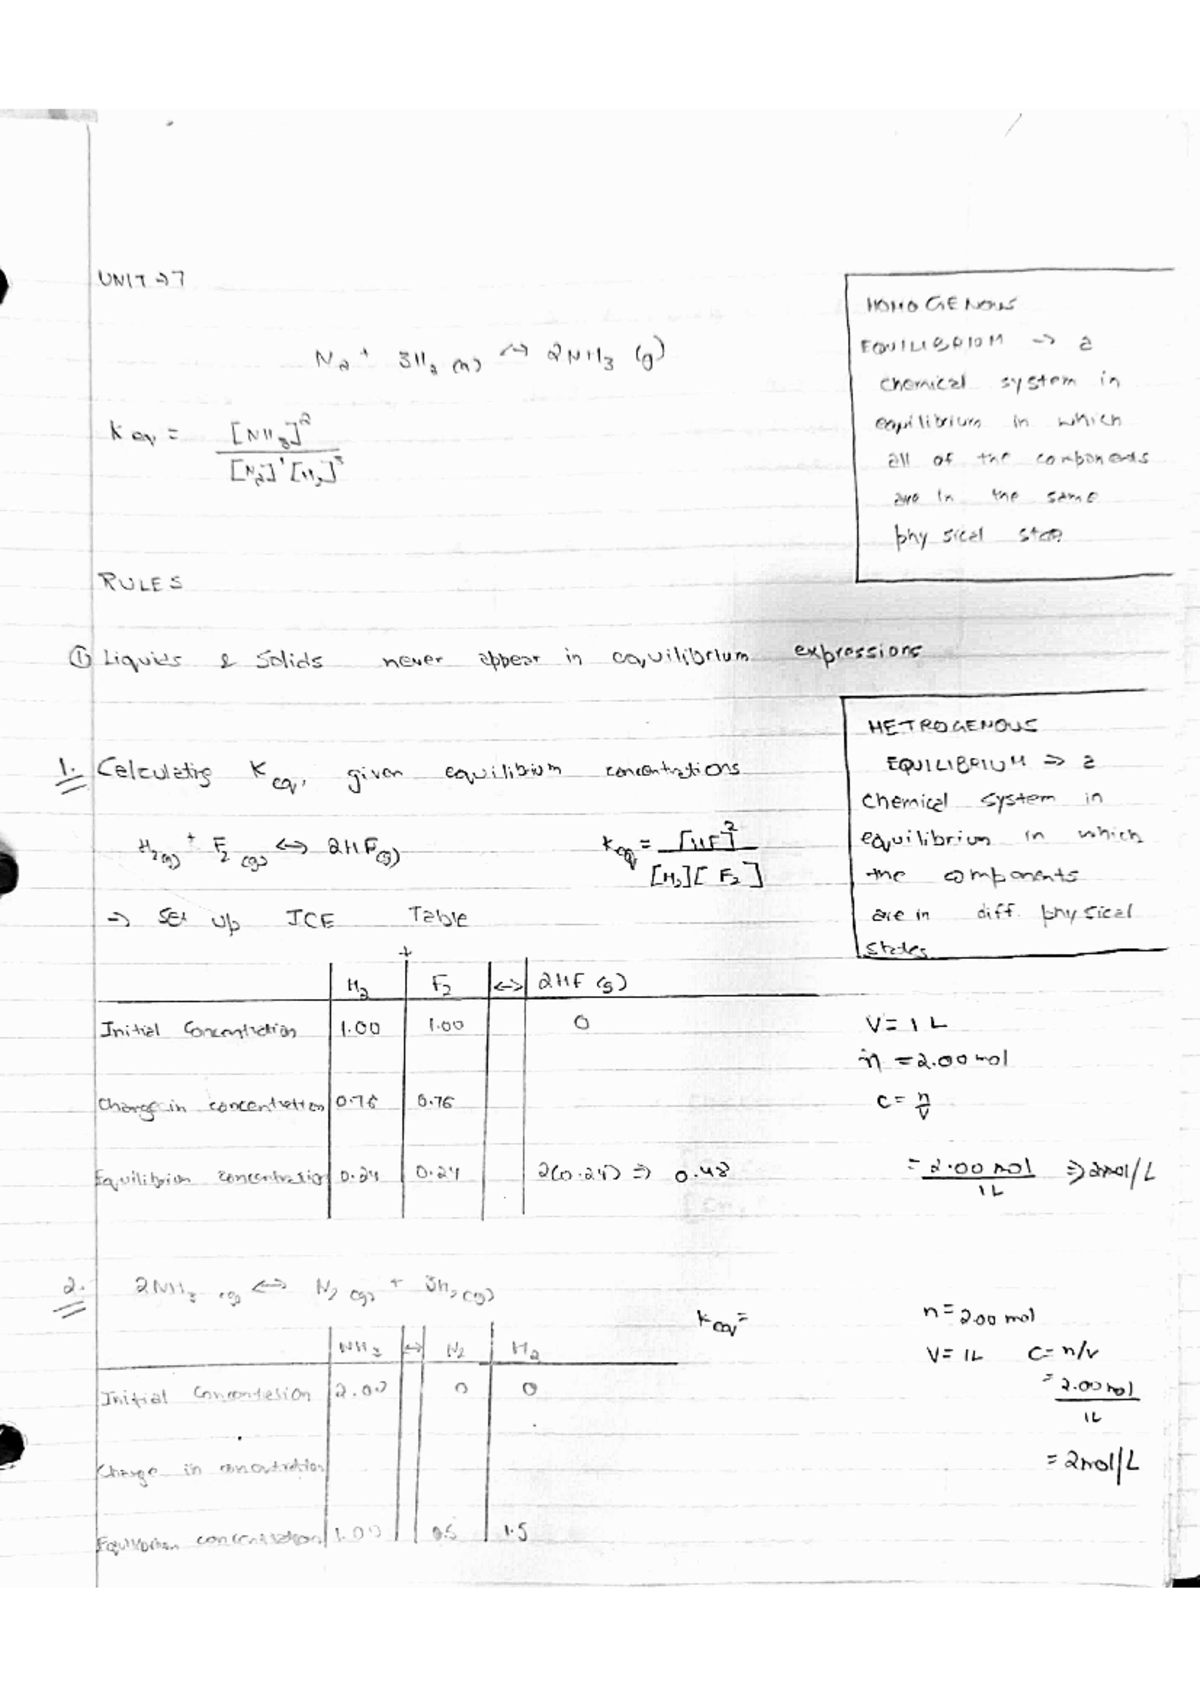 UNIT → 7
HOMOGENOUS
EQUILIBRIUM → a
chemical system in
equilibrium in which
all of the components
are in the same
physical state
N2 + 3H2 (g) ↔ 2NH3 (g)
Keq = [NH3]^2
[N2]^1 [H2]^3
RULES
① Liquids & Solids never appear in equilibrium expressions
HETROGENOUS
EQUILIBRIUM ⇒ a
chemical system in
equilibrium in which
the components
are in diff. physical
states
1. Calculating Keq, given equilibrium concentrations
H2(g) + F2 (g) ↔ 2HF(g)
Keq = [HF]^2
[H2][F2]
→ Set up ICE Table
H2 + F2 ↔ 2HF (g)
Initial Concentration 1.00 1.00 0
Change in concentration 0.76 0.76
Equilibrium concentration 0.24 0.24 2(0.24) ⇒ 0.48
V = 1 L
n = 2.00 mol
C = n/V
= 2.00 mol ⇒ 2mol/L
1L
2. 2NH3 (g) ↔ N2 (g) + 3H2 (g)
Keq =
NH3 ↔ N2 H2
Initial Concentration 2.00 0 0
Change in concentration
Equilibrium concentration 1.00 0.5 1.5
n = 2.00 mol
V = 1L C = n/v
= 2.00 mol
1L
= 2mol/L